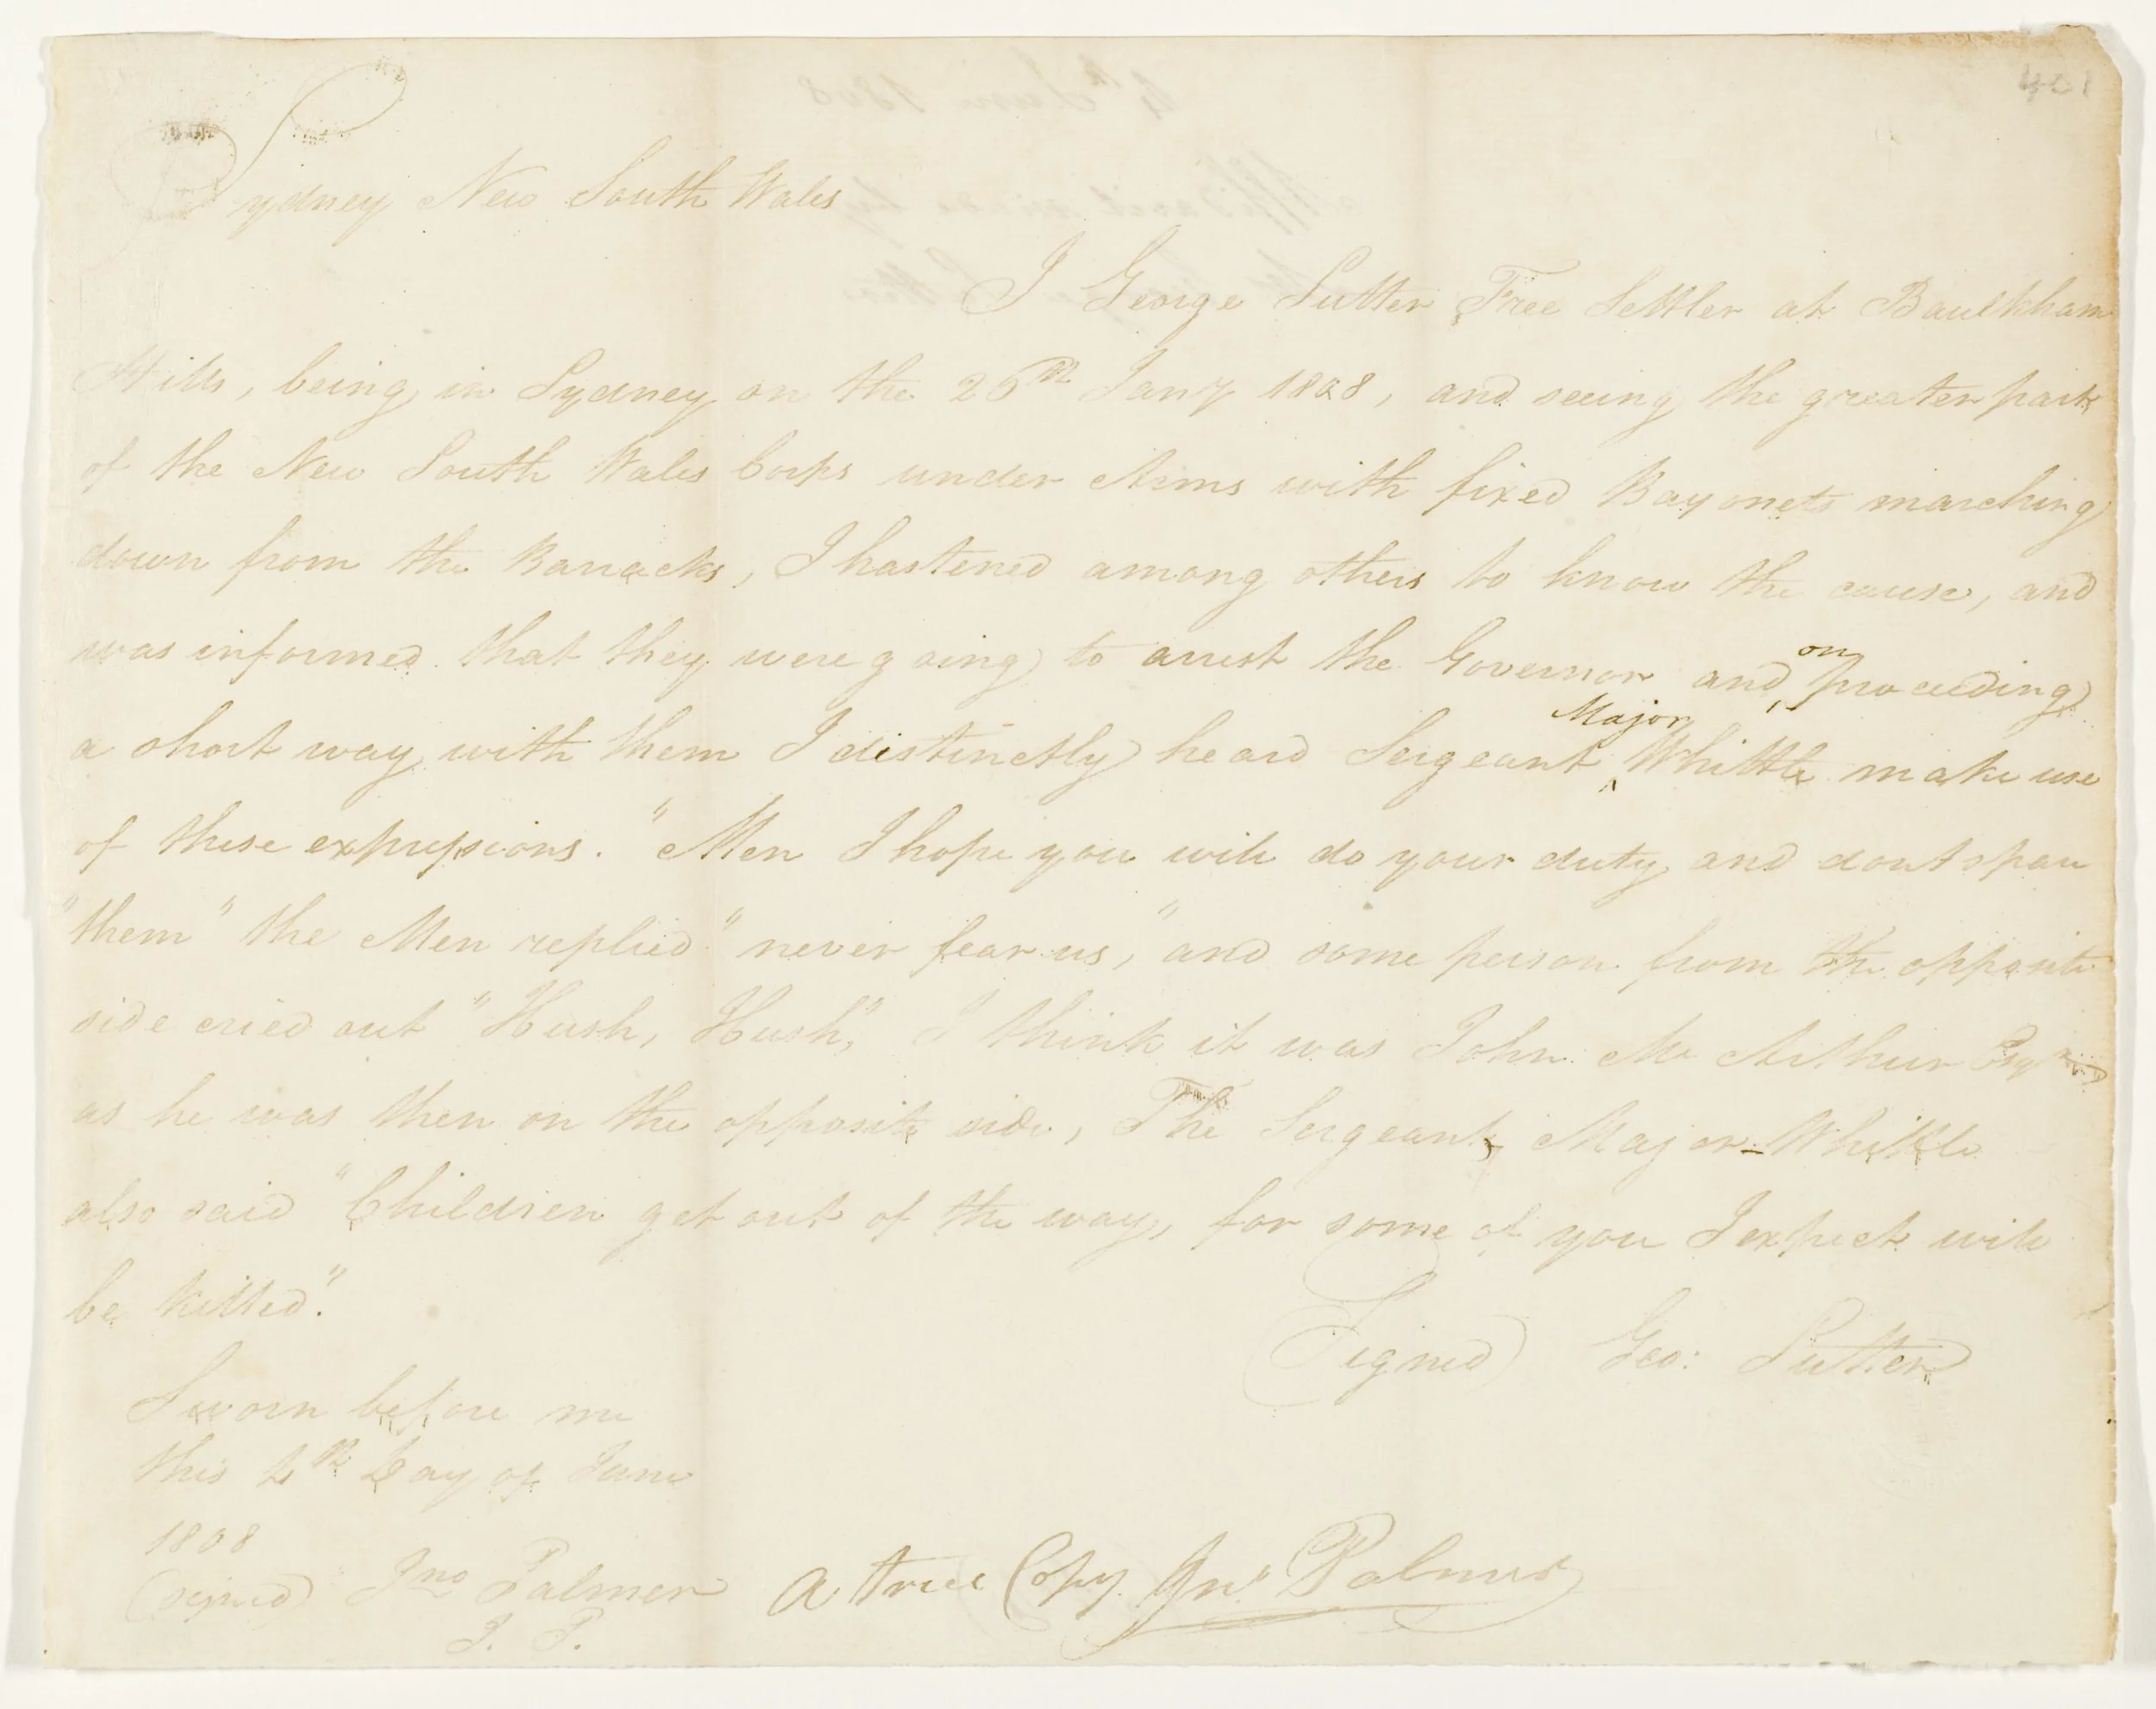 421
Sydney New South Wales
I George Sutter Free Settler at Baulkham
Hills, being in Sydney on the 26th Jany 1808, and seeing the greater part
of the New South Wales Corps under Arms with fixed Bayonets marching
down from the Barracks, I hastened among others to know the cause, and
was informed that they were going to arrest the Governor and on proceeding
a short way with them I distinctly heard Sergeant Major Whittle make use
of these expressions. "Men I hope you will do your duty and dont spare
"them" the Men replied "never fear us," and some person from the opposite
side cried out "Hush, Hush," I think it was John Mc Arthur Esqr
as he was then on the opposite side, The Sergeant Major Whittle
also said "Children get out of the way, for some of you I expect will
be killed".
(Signed) Geo: Sutter
Sworn before me
this 4th Day of June
1808
(signed) Jno Palmer
J. P.
A true Copy. Jno. Palmer